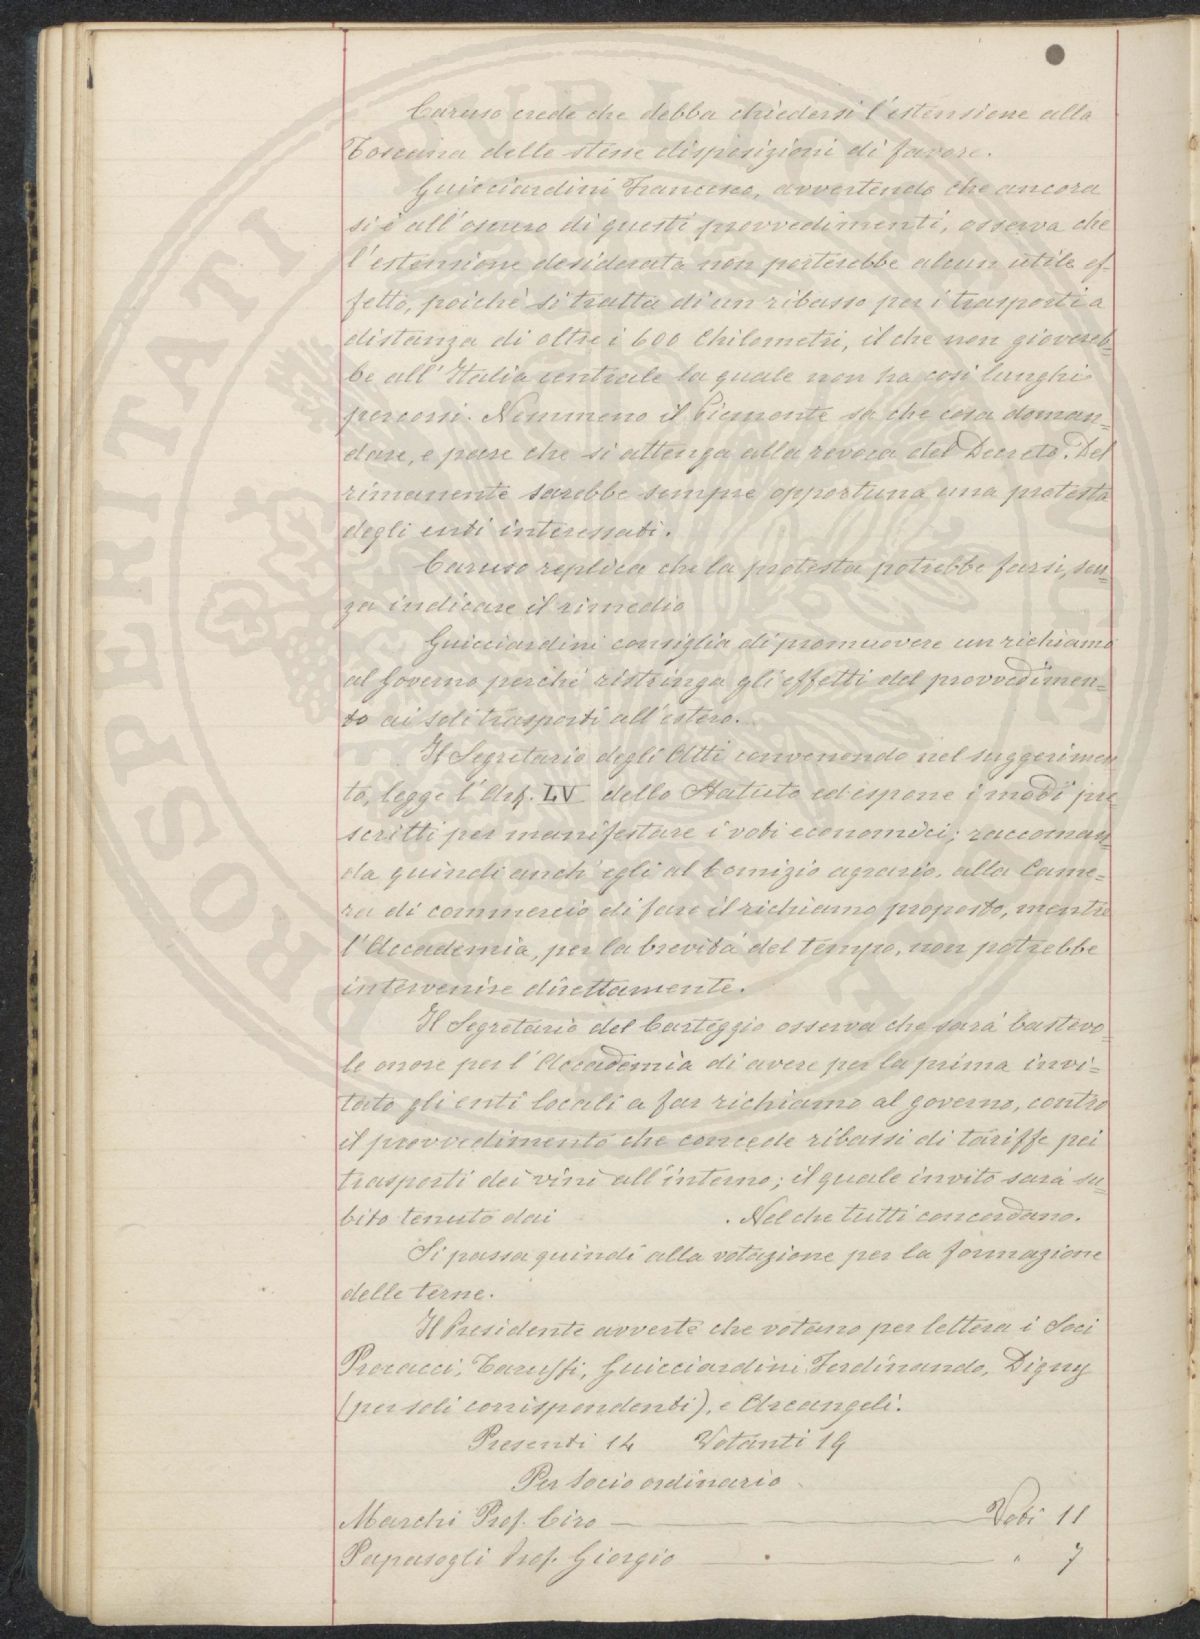 Caruso crede che debba chiedersi l'estensione alla
Toscana delle stesse disposizioni di favore.
Guicciardini Francesco, avvertendo che ancora
si è all'oscuro di questi provvedimenti, osserva che
l'estensione desiderata non porterebbe alcun utile ef-
fetto, poichè si tratta di un ribasso per i trasporti a
distanza di oltre i 600 Chilometri, il che non giovereb=
be all'Italia centrale la quale non ha così lunghi
percorsi. Nemmeno il Piemonte sa che cosa doman=
dare, e pare che si attenga alla revoca del Decreto. Del
rimanente sarebbe sempre opportuna una protesta
degli enti interessati.
Caruso replica che la protesta potrebbe farsi, sen=
za indicare il rimedio
Guicciardini consiglia di promuovere un richiamo
al Governo perchè ristringa gli effetti del provvedimen=
to ai soli trasporti all'estero.
Il Segretario degli Atti convenendo nel suggerimen=
to, legge l'Art. LV dello Statuto ed espone i modi pre
scritti per manifestare i voti economici; raccoman=
da quindi anch'egli al Comizio agrario, alla Came=
ra di commercio di fare il richiamo proposto, mentre
l'Accademia, per la brevità del tempo, non potrebbe
intervenire direttamente.
Il Segretario del Carteggio osserva che sarà bastevo=
le onore per l'Accademia di avere per la prima invi=
tato gli enti locali a far richiamo al governo, contro
il provvedimento che concede ribassi di tariffe pei
trasporti dei vini all'interno; il quale invito sarà su=
bito tenuto dai . Nel che tutti concordano.
Si passa quindi alla votazione per la formazione
delle terne.
Il Presidente avverte che votano per lettera i Soci
Procacci, Taruffi, Guicciardini Ferdinando, Digny
(per soli corrispondenti), e Arcangeli.
Presenti 14 Votanti 19
Per Socio ordinario
Marchi Prof. Ciro — Voti 11
Papasogli Prof. Giorgio — " 7
PROSPERITATI PVBLICAE AVGENDAE